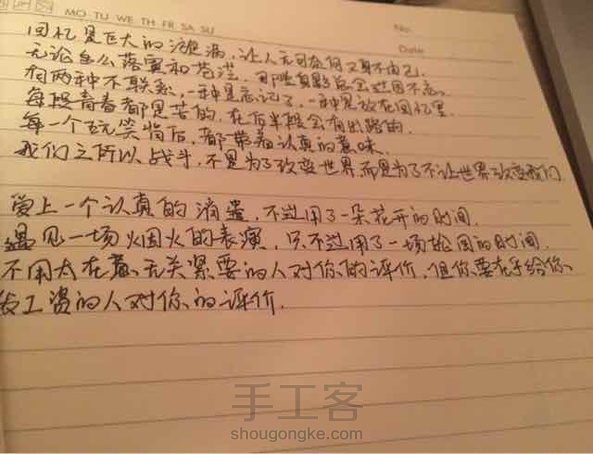 MO TU WE TH FR SA SU
No.
Date
回忆是巨大的漩涡,让人无可奈何又身不由己.
无论怎么落寞和苍茫,那些身影总会过目不忘.
有两种不联系,一种是忘记了,一种是放在回忆里.
每段青春都是苦的,在后半段会有出路的.
每一个玩笑背后,都带着认真的意味.
我们之所以战斗,不是为了改变世界,而是为了不让世界改变我们.
爱上一个认真的消遣,不过用了一朵花开的时间.
遇见一场烟火的表演,只不过用了一场轮回的时间.
不用太在意无关紧要的人对你的评价,但你要在乎给你
发工资的人对你的评价.
手工客
shougongke.com